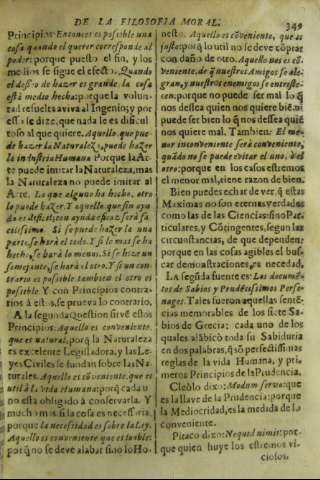 DE LA FILOSOFIA MORAL.
349
Principios. Entonces es posible una
cosa quando el querer corresponde al
poder: porque puesto el fin, y los
medios se sigue el efecto. Quando
el deseo de hazer es grande la cosa
està medio hecha: porque la volun-
tad resuelta aviva al Ingenio; y por
esso se dize, que nada le es dificul-
toso al que quiere. Aquello, que pue-
de hazer la Naturaleza, puede hazer
lo industria Humana. Porque la Ar-
te puede imitar la Naturaleza, mas
la Naturaleza no puede imitar al
Arte. Lo que alguno ha hecho, otro
lo puede hazer. Y aquello, que sin ayu
da es dificil; con ayuda eficaz serà fa
cilissimo. Si se puede hazer la una
parte, se harà el todo. Y si lo mas se ha
hecho, se harà lo menos. Si se hize un
semejante, se harà el otro. Y si un con-
trario es posible, tambien el otro es
posible. Y con Principios contra-
rios à estos, se prueva lo contrario.
A la segunda Question sirvẽ estos
Principios. Aquello es conveniente.
que es natural, porq̃ la Naturaleza
es excelente Legisladora, y las Le-
yes Civiles se fundan sobre las Na-
turales. Aquello es cõveniente, que es
util à la vida Humana: porq̃ cada u
no està obligado à conservarla. Y
mucho mas si la cosa es necessaria,
porque la necessidad es sobre la Ley.
Aquello es conveniente que es loable:
porq̃ no se deve alabar sino lo Ho-
nesto. Aquello es cõveniente, que es
justo: porq̃ lo util no se deve cõprar
con daño de otro. Aquello nos es cõ-
veniente, de q̃ nuestros Amigos se ale-
gran, y nuestros enemigos se entriste-
cen: porque no puede ser mal lo q̃
nos dessea quien nos quiere bien: ni
puede ser bien lo q̃ nos dessea quiẽ
nos quiere mal. Tambien: El me-
nor inconveniente serà conveniente,
quãdo no se puede evitar el uno, ò el
otro: porque en los casos estremos
el menor mal, tiene razon de bien.
Bien puedes echar de ver, q̃ estas
Maximas no son eternas verdades
como las de las Ciencias: sino Par-
ticulares, y Cõtingentes, segun las
circunstancias, de que dependen:
porque en las cosas agibles el bus-
car demonstraciones, es necedad.
La segũda fuente es: Los documẽ-
tos de Sabios y Prudẽtissimos Perso-
nages. Tales fueron aquellas senten-
cias memorables de los siete Sa-
bios de Grecia; cada uno de los
quales alãbicò toda su Sabiduria
en dos palabras, q̃ sõ perfectissimas
reglas de la vida Humana, y pri-
meros Principios de la Prudencia.
Cleòblo dixo: Modum serva: que
es la llave de la Prudencia: porque
la Mediocridad, es la medida de lo
conveniente.
Pitaco dixo: Nequid nimis: por-
que quien huye los estremos vi-
ciosos,